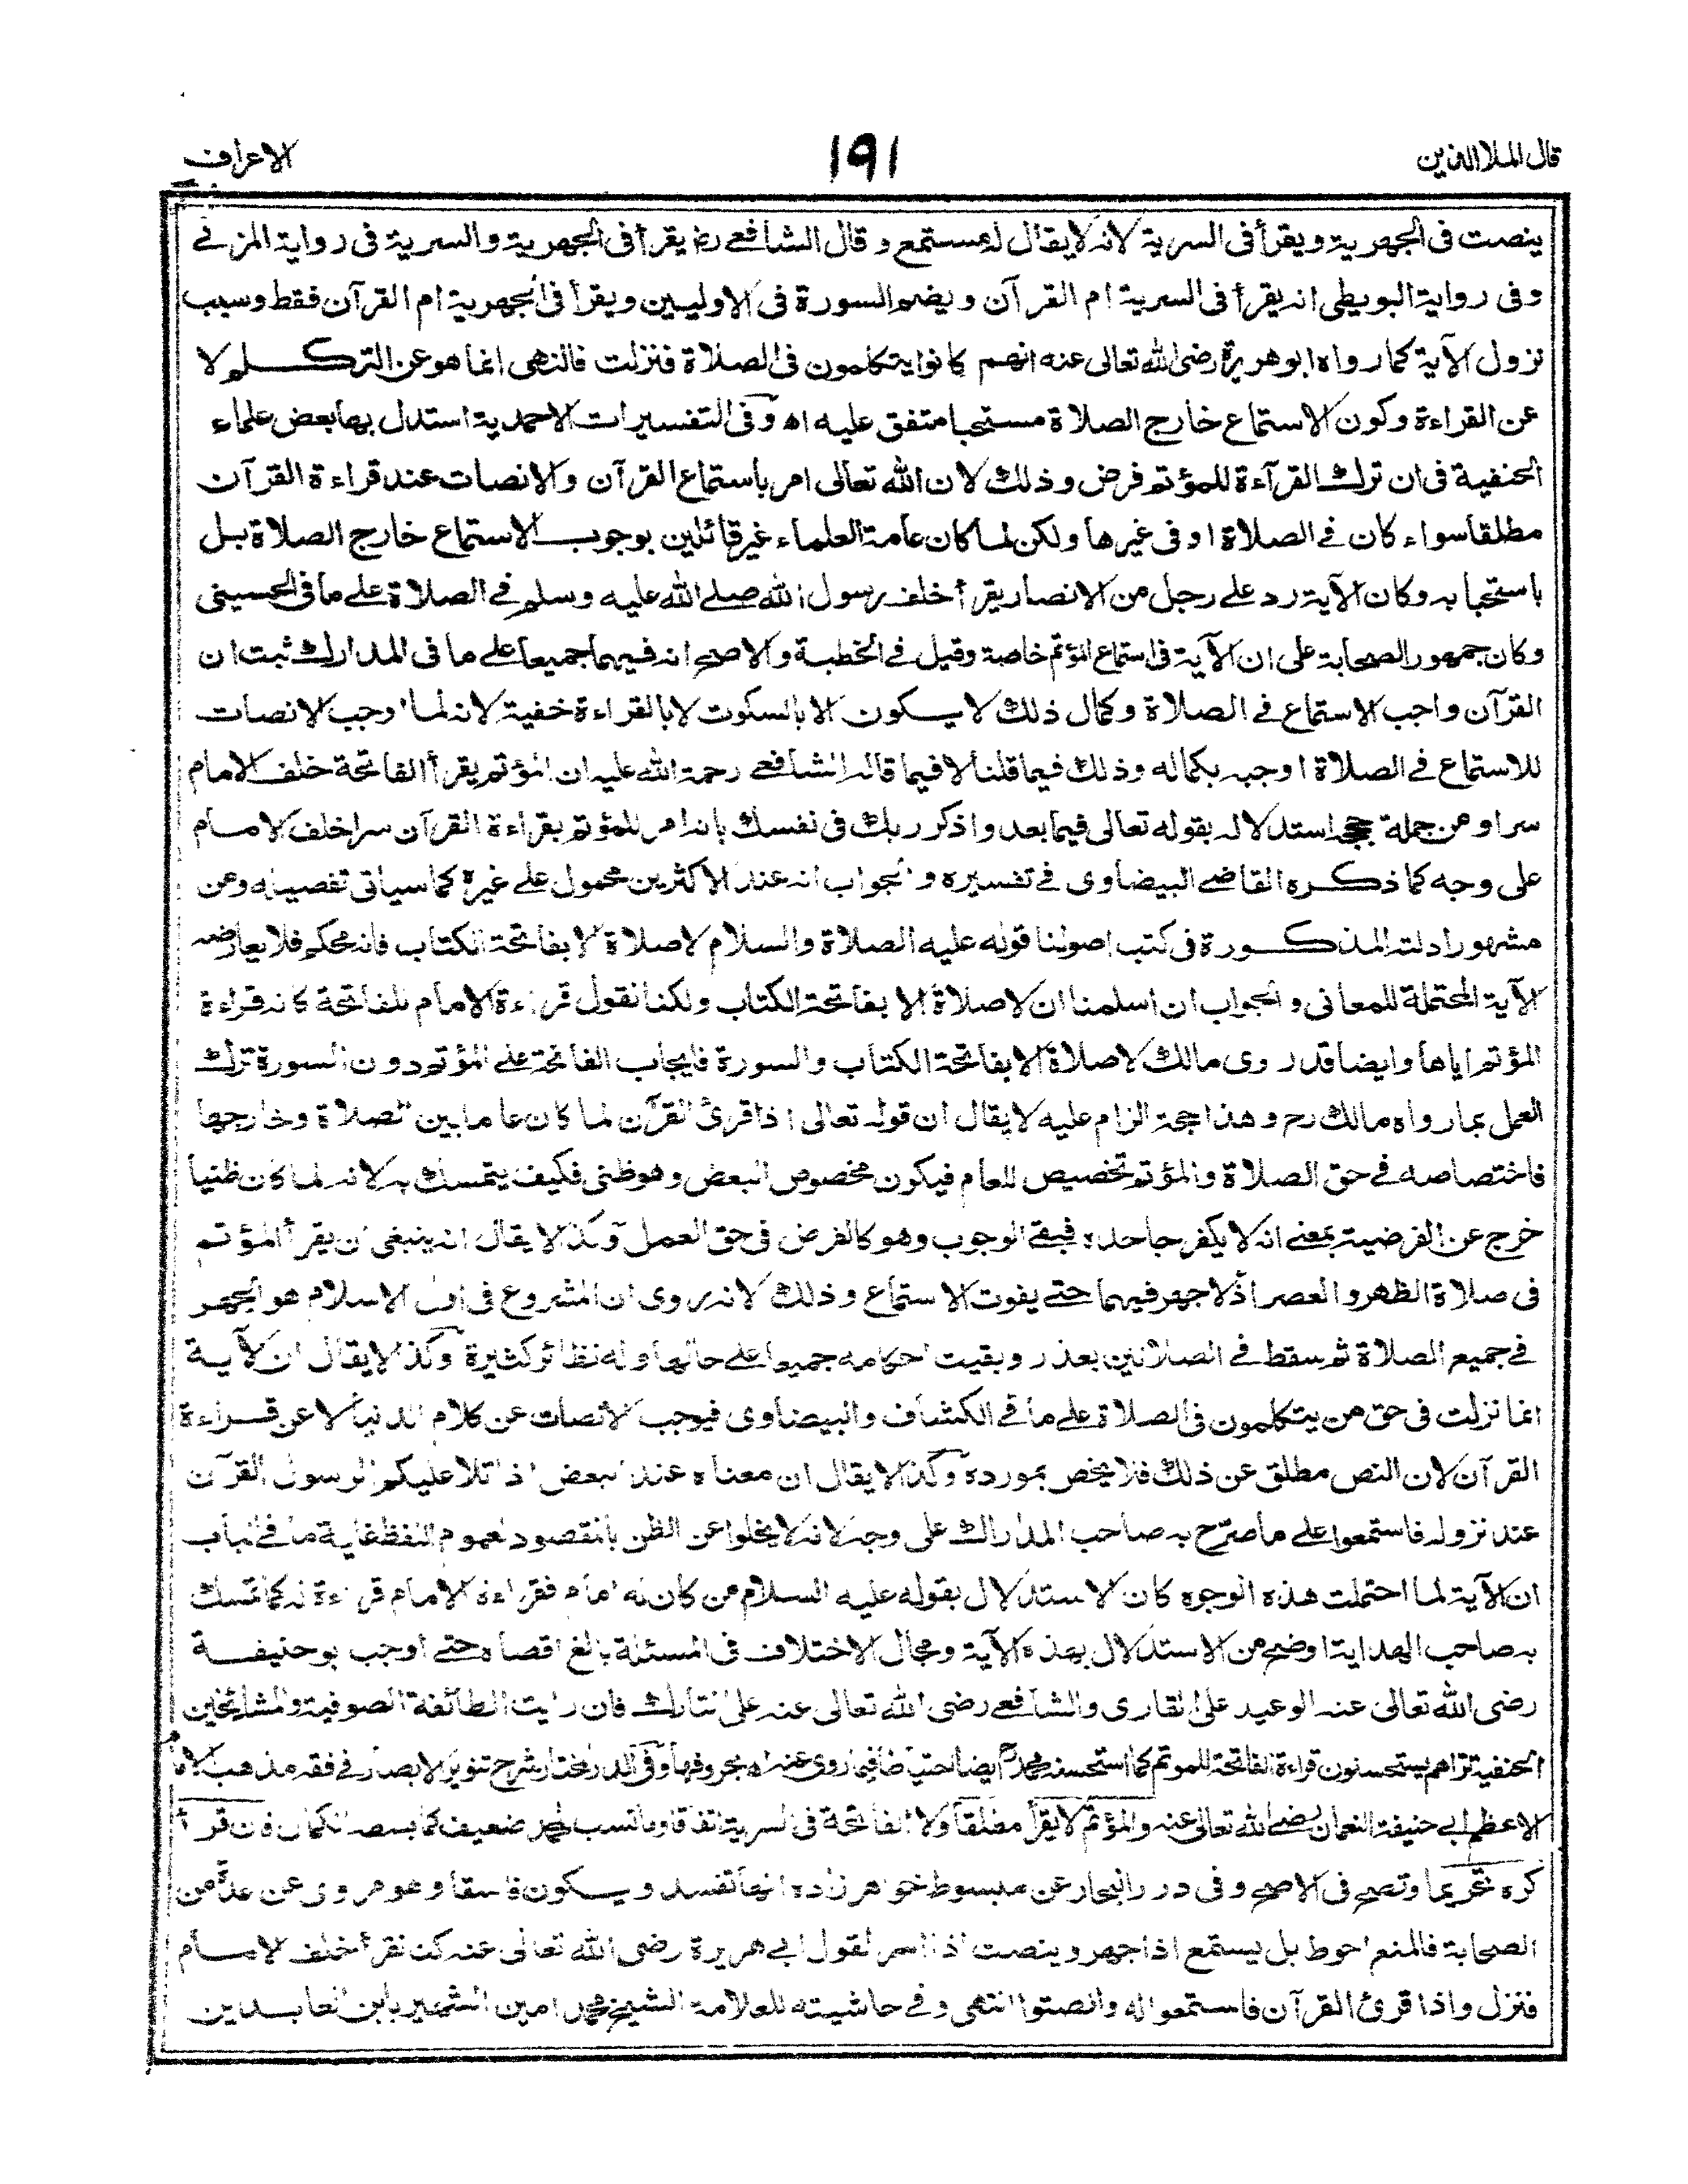 قال الملا الذين
١٩١
الاعراف
ينصت فى الجهرية ويقرأ فى السرية لانه لا يقال له مستمع وقال الشافعے رض يقرأ فى الجهرية والسرية فى رواية المزنے
وفى رواية البويطى انه يقرأ فى السرية ام القرآن ويضم السورة فى الاوليين ويقرأ فى الجهرية ام القرآن فقط وسبب
نزول الآية كما رواه ابو هريرة رضى الله تعالى عنه انهم كانوا يتكلمون فى الصلاة فنزلت فالنهى انما هو عن التكلم لا
عن القراءة وكون الاستماع خارج الصلاة مستحبا متفق عليه اه وفى التفسيرات الاحمدية استدل بها بعض علماء
الحنفية فى ان ترك القرآءة للمؤتم فرض وذلك لان الله تعالى امر باستماع القرآن والانصات عند قراءة القرآن
مطلقا سواء كان فے الصلاة او فى غيرها ولكن لما كان عامة العلماء غير قائلين بوجوب الاستماع خارج الصلاة بل
باستحبابه وكان الآية رد على رجل من الانصار يقرأ خلف رسول الله صلے الله عليه وسلم فے الصلاة علے ما فى الحسينى
وكان جمهور الصحابة على ان الآية فى استماع المؤتم خاصة وقيل فے الخطبة والاصح انه فيهما جميعا علے ما فى المدارك ثبت ان
القرآن واجب الاستماع فے الصلاة وكمال ذلك لا يكون الا بالسكوت لا بالقراءة خفية لانه لما اوجب الانصات
للاستماع فے الصلاة اوجبه بكماله وذلك فيما قلنا لا فيما قاله الشافعے رحمة الله عليه ان المؤتم يقرأ الفاتحة خلف الامام
سرا ومن جملة حججه استدلاله بقوله تعالى فيما بعد واذكر ربك فى نفسك بانه امر للمؤتم بقراءة القرآن سرا خلف الامام
على وجه كما ذكره القاضے البيضاوى فے تفسيره والجواب انه عند الاكثرين محمول علے غيره كما سياتى تفصيله ومن
مشهور ادلته المذكورة فى كتب اصولنا قوله عليه الصلاة والسلام لا صلاة الا بفاتحة الكتاب فانه محكم فلا يعارضه
الآية المحتملة للمعانى والجواب ان اسلمنا ان لا صلاة الا بفاتحة الكتاب ولكنا نقول قراءة الامام للفاتحة كانه قراءة
المؤتم اياها وايضا قد روى مالك لا صلاة الا بفاتحة الكتاب والسورة فايجاب الفاتحة علے المؤتم دون السورة ترك
العمل بما رواه مالك رح وهذا حجة الزام عليه لا يقال ان قوله تعالى اذا قرئ القرآن لما كان عاما بين الصلاة وخارجها
فاختصاصه فے حق الصلاة والمؤتم تخصيص للعام فيكون مخصوص البعض وهو ظنى فكيف يتمسك به لانه لما كان ظنيا
خرج عن الفرضية بمعنے انه لا يكفر جاحده فبقے الوجوب وهو كالفرض فى حق العمل وكذا لا يقال انه ينبغى ان يقرأ المؤتم
فى صلاة الظهر والعصر اذ لا جهر فيهما حتے يفوت الاستماع وذلك لانه روى ان المشروع فى اول الاسلام هو الجهر
فے جميع الصلاة ثم سقط فے الصلاتين بعذر وبقيت احكامه جميعا علے حالها وله نظائر كثيرة وكذا لا يقال ان الآية
انما نزلت فى حق من يتكلمون فى الصلاة علے ما فے الكشاف والبيضاوى فيوجب الانصات عن كلام الدنيا لا عن قراءة
القرآن لان النص مطلق عن ذلك فلا يخص بمورده وكذا لا يقال ان معناه عند البعض اذا تلا عليكم الرسول القرآن
عند نزوله فاستمعوا علے ما صرّح به صاحب المدارك على وجه لانه لا يخلوا عن الظن بالمقصود لعموم اللفظ غاية ما فے الباب
ان الآية لما احتملت هذه الوجوه كان الاستدلال بقوله عليه السلام من كان له امام فقراءة الامام قراءة له كما تمسك
به صاحب الهداية اوضح من الاستدلال بهذه الآية ومجال الاختلاف فى المسئلة بالغ اقصاه حتے اوجب ابو حنيفة
رضى الله تعالى عنه الوعيد على القارى والشافعے رضى الله تعالى عنه على التارك فان رايت الطائفة الصوفية والمشائخين
الحنفية تراهم يستحسنون قراءة الفاتحة للموتم كما استحسنه محمد رح ايضا احتياطا فيما روى عنه اه بحروفها وفى الدر المختار شرح تنوير الابصار فے فقه مذهب الامام
الاعظم ابے حنيفة النعمان رضے الله تعالى عنه والمؤتم لا يقرأ مطلقا ولا الفاتحة فى السرية اتفاقا وما نسب لمحمد ضعيف كما بسطه الكمال فان قرأ
كره تحريما وتصح فى الاصح وفى درر البحار عن مبسوط خواهر زاده انها تفسد ويكون فاسقا وهو مروى عن عدّة من
الصحابة فالمنع احوط بل يستمع اذا جهر وينصت اذا اسر لقول ابے هريرة رضى الله تعالى عنه كنا نقرأ خلف الامام
فنزل واذا قرئ القرآن فاستمعوا له وانصتوا انتهى وفے حاشيته للعلامة الشيخ محمد امين الشهير بابن العابدين